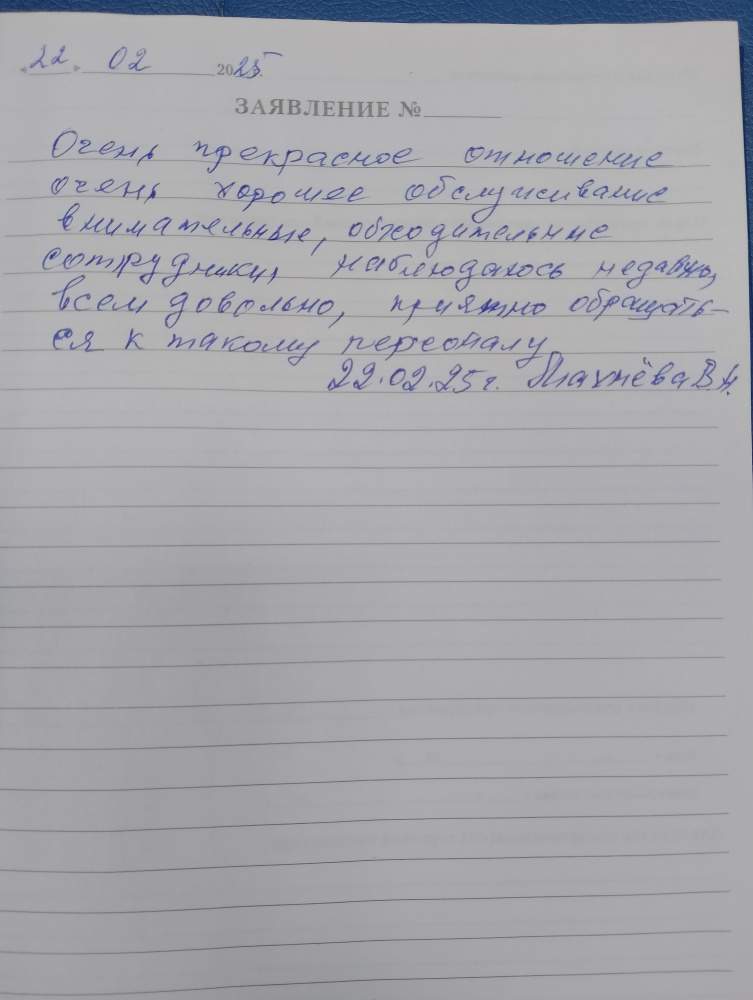 «22» 02 2025г.
ЗАЯВЛЕНИЕ №
Очень прекрасное отношение
очень хорошее обслуживание
внимательные, обходительные
сотрудники, наблюдаюсь недавно,
всем довольно, приятно обращать-
ся к такому персоналу
22.02.25г. Махнёва В.А.